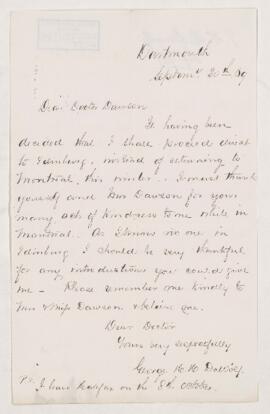 Dartmouth
Septemr 20th /89
Dear Doctor Dawson
It having been
decided that I shall proceed direct
to Edinburg, instead of returning to
Montreal, this winter. I must thank
yourself and Mrs Dawson for your
many acts of kindness to me while in
Montreal. As I know no one in
Edinburg I should be very thankful
for any introductions you could give
me — Please remember me kindly to
Mrs & Miss Dawson & believe me.
Dear Doctor
Yours very respectfully
George H. H.
P.S. I leave Halifax on the 8th October.